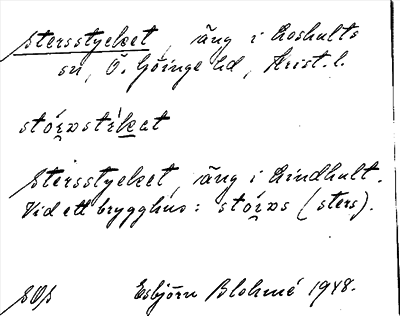 Stersstycket, äng i Loshults
sn, Ö. Göinge hd, Krist. l.
stó́rsstìkət
Stersstycket, äng i Kindhult.
Vid ett brygghus: stó́rs (sters).
Esbjörn Blohmé 1948.